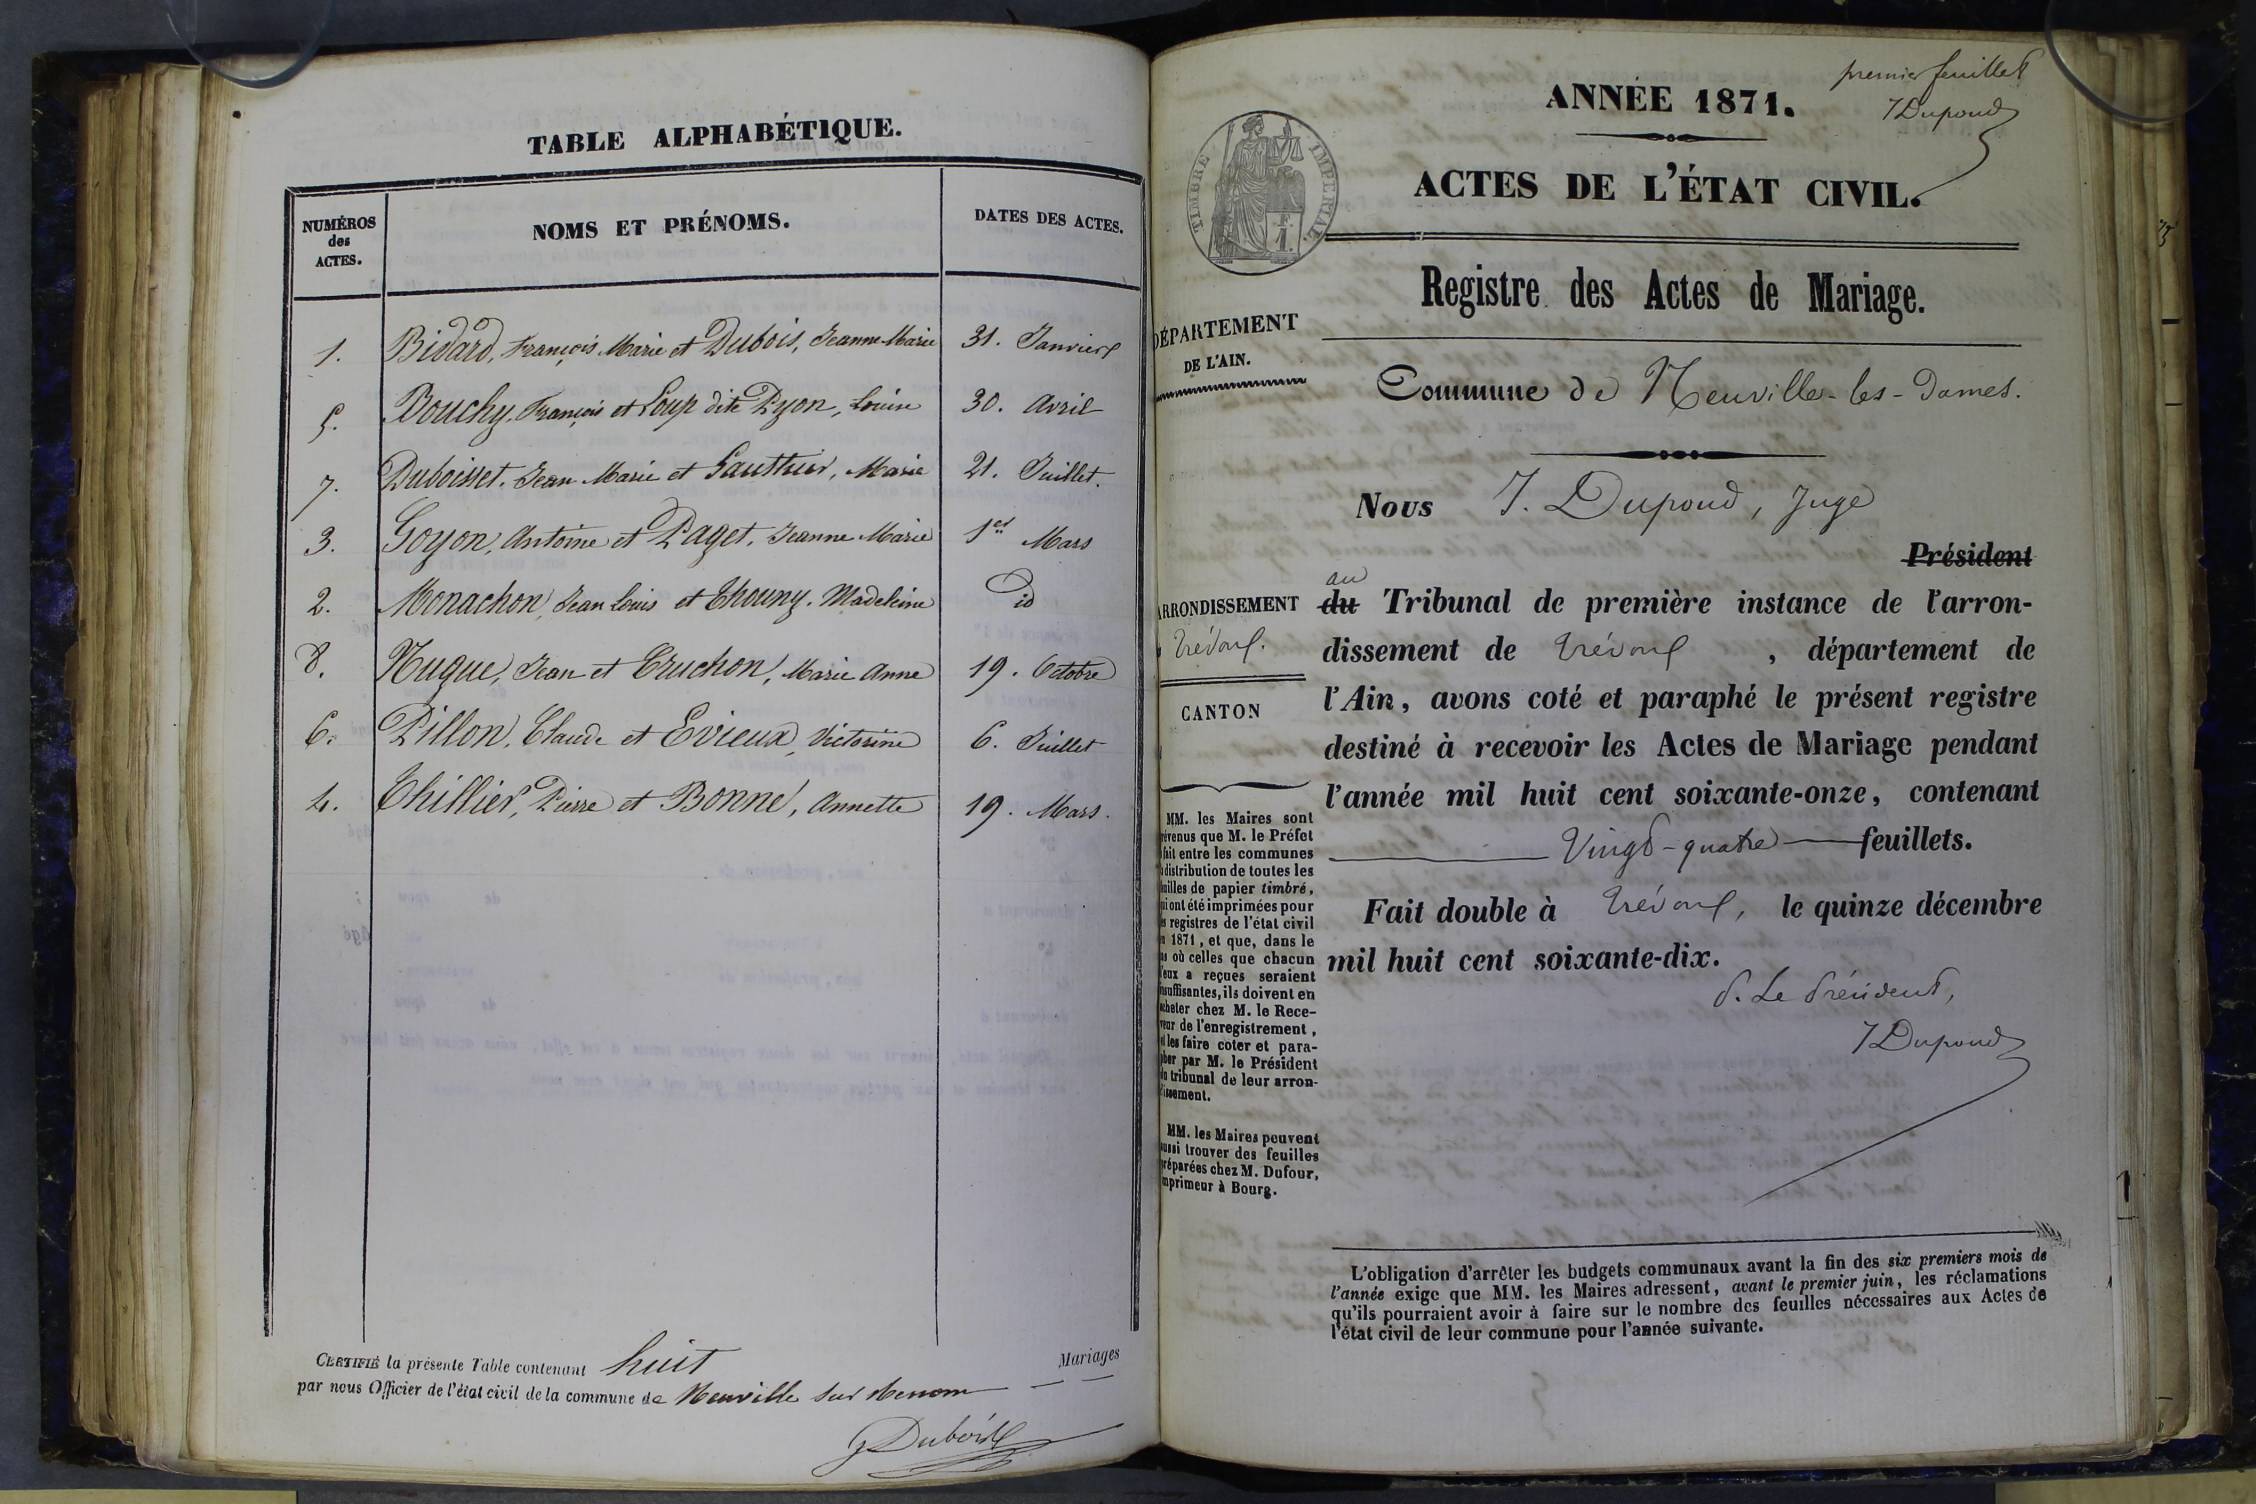 TABLE ALPHABÉTIQUE.
NUMÉROS
des
ACTES.
NOMS ET PRÉNOMS.
DATES DES ACTES.
1. Bidard, François Marie et Dubois, Jeanne Marie 31. Janvier
5. Bouchy, François et Loup dite Pyon, Louise 30. Avril
7. Duboisset, Jean Marie et Gauthier, Marie 21. Juillet.
3. Goyon, Antoine et Paget, Jeanne Marie 1er Mars
2. Monachon, Jean Louis et Chouny, Madeleine id
8. Nugue, Jean et Cruchon, Marie Anne 19. Octobre
6. Pillon, Claude et Evieux, Victorine 6. Juillet
4. Chillier, Pierre et Bonne, Annette 19. Mars.
CERTIFIÉ la présente Table contenant huit Mariages
par nous Officier de l'état civil de la commune de Neuville sur Renom
premier feuillet
J Dupond
ANNÉE 1871.
TIMBRE IMPÉRIAL
ACTES DE L'ÉTAT CIVIL.
Registre des Actes de Mariage.
DÉPARTEMENT
DE L'AIN.
Commune de Neuville-les-Dames.
Nous J. Dupond, Juge
Président
au
du Tribunal de première instance de l'arron-
dissement de Trévoux, département de
l'Ain, avons coté et paraphé le présent registre
destiné à recevoir les Actes de Mariage pendant
l'année mil huit cent soixante-onze, contenant
Vingt-quatre feuillets.
Fait double à Trévoux, le quinze décembre
mil huit cent soixante-dix.
P. Le Président,
J Dupond
ARRONDISSEMENT
Trévoux.
CANTON
MM. les Maires sont
révenus que M. le Préfet
fait entre les communes
distribution de toutes les
uilles de papier timbré,
ui ont été imprimées pour
s registres de l'état civil
n 1871, et que, dans le
as où celles que chacun
'eux a reçues seraient
nsuffisantes, ils doivent en
cheter chez M. le Rece-
veur de l'enregistrement,
t les faire coter et para-
pher par M. le Président
du tribunal de leur arron-
issement.
MM. les Maires peuvent
aussi trouver des feuilles
préparées chez M. Dufour,
mprimeur à Bourg.
L'obligation d'arrêter les budgets communaux avant la fin des six premiers mois de
l'année exige que MM. les Maires adressent, avant le premier juin, les réclamations
qu'ils pourraient avoir à faire sur le nombre des feuilles nécessaires aux Actes de
l'état civil de leur commune pour l'année suivante.